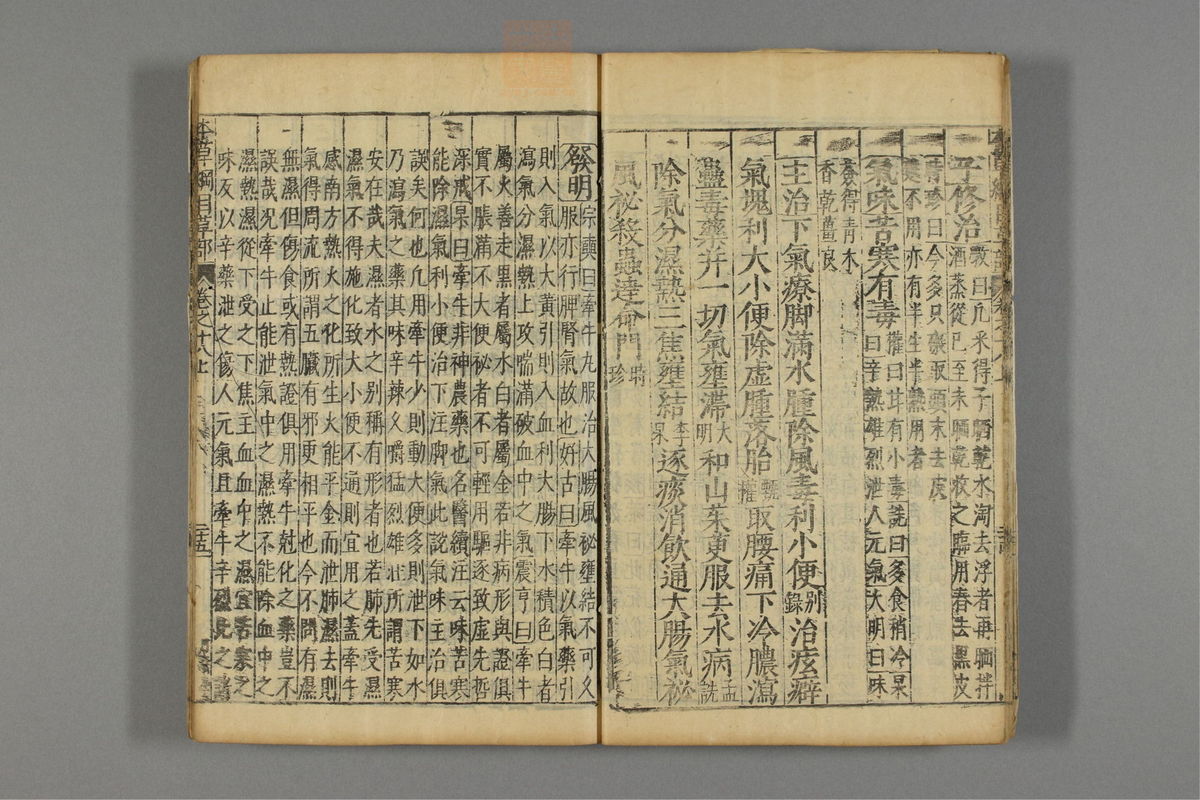 子修治斅曰凡采得子晒乾水淘去浮者再晒拌
酒蒸從巳至未晒乾收之臨用舂去黑皮
時珍曰今多只碾取頭末去皮
麩不用亦有半生半熟用者
氣味苦寒有毒權曰甘有小毒詵曰多食稍冷杲
曰辛熱雄烈泄人元氣大明曰味
薟得青木
香乾薑良
主治下氣療脚滿水腫除風毒利小便別錄治痃癖
氣塊利大小便除虛腫落胎甄權取腰痛下冷膿瀉
蠱毒藥并一切氣壅滯大明和山茱萸服去水病孟詵
除氣分濕熱三焦壅結李杲逐痰消飲通大腸氣祕
風祕殺蟲達命門時珍
發明宗奭曰牽牛丸服治大腸風祕壅結不可久
服亦行脾腎氣故也好古曰牽牛以氣藥引
則入氣以大黃引則入血利大腸下水積色白者
瀉氣分濕熱上攻喘滿破血中之氣震亨曰牽牛
屬火善走黑者屬水白者屬金若非病形與證俱
實不脹滿不大便祕者不可輕用驅逐致虛先哲
深戒杲曰牽牛非神農藥也名醫續注云味苦寒
能除濕氣利小便治下注脚氣此說氣味主治俱
誤矣何也凡用牽牛少則動大便多則泄下如水
乃瀉氣之藥其味辛辣久嚼猛烈雄壯所謂苦寒
安在哉夫濕者水之別稱有形者也若肺先受濕
濕氣不得施化致大小便不通則宜用之蓋牽牛
感南方熱火之化所生火能平金而泄肺濕去則
氣得周流所謂五臟有邪更相平也今不問有濕
無濕但傷食或有熱證俱用牽牛尅化之藥豈不
誤哉况牽牛止能泄氣中之濕熱不能除血中之
濕熱濕從下受之下焦主血血中之濕宜苦寒之
味反以辛藥泄之傷人元氣且牽牛辛烈比之諸
本草綱目草部 卷之十八上 二十五